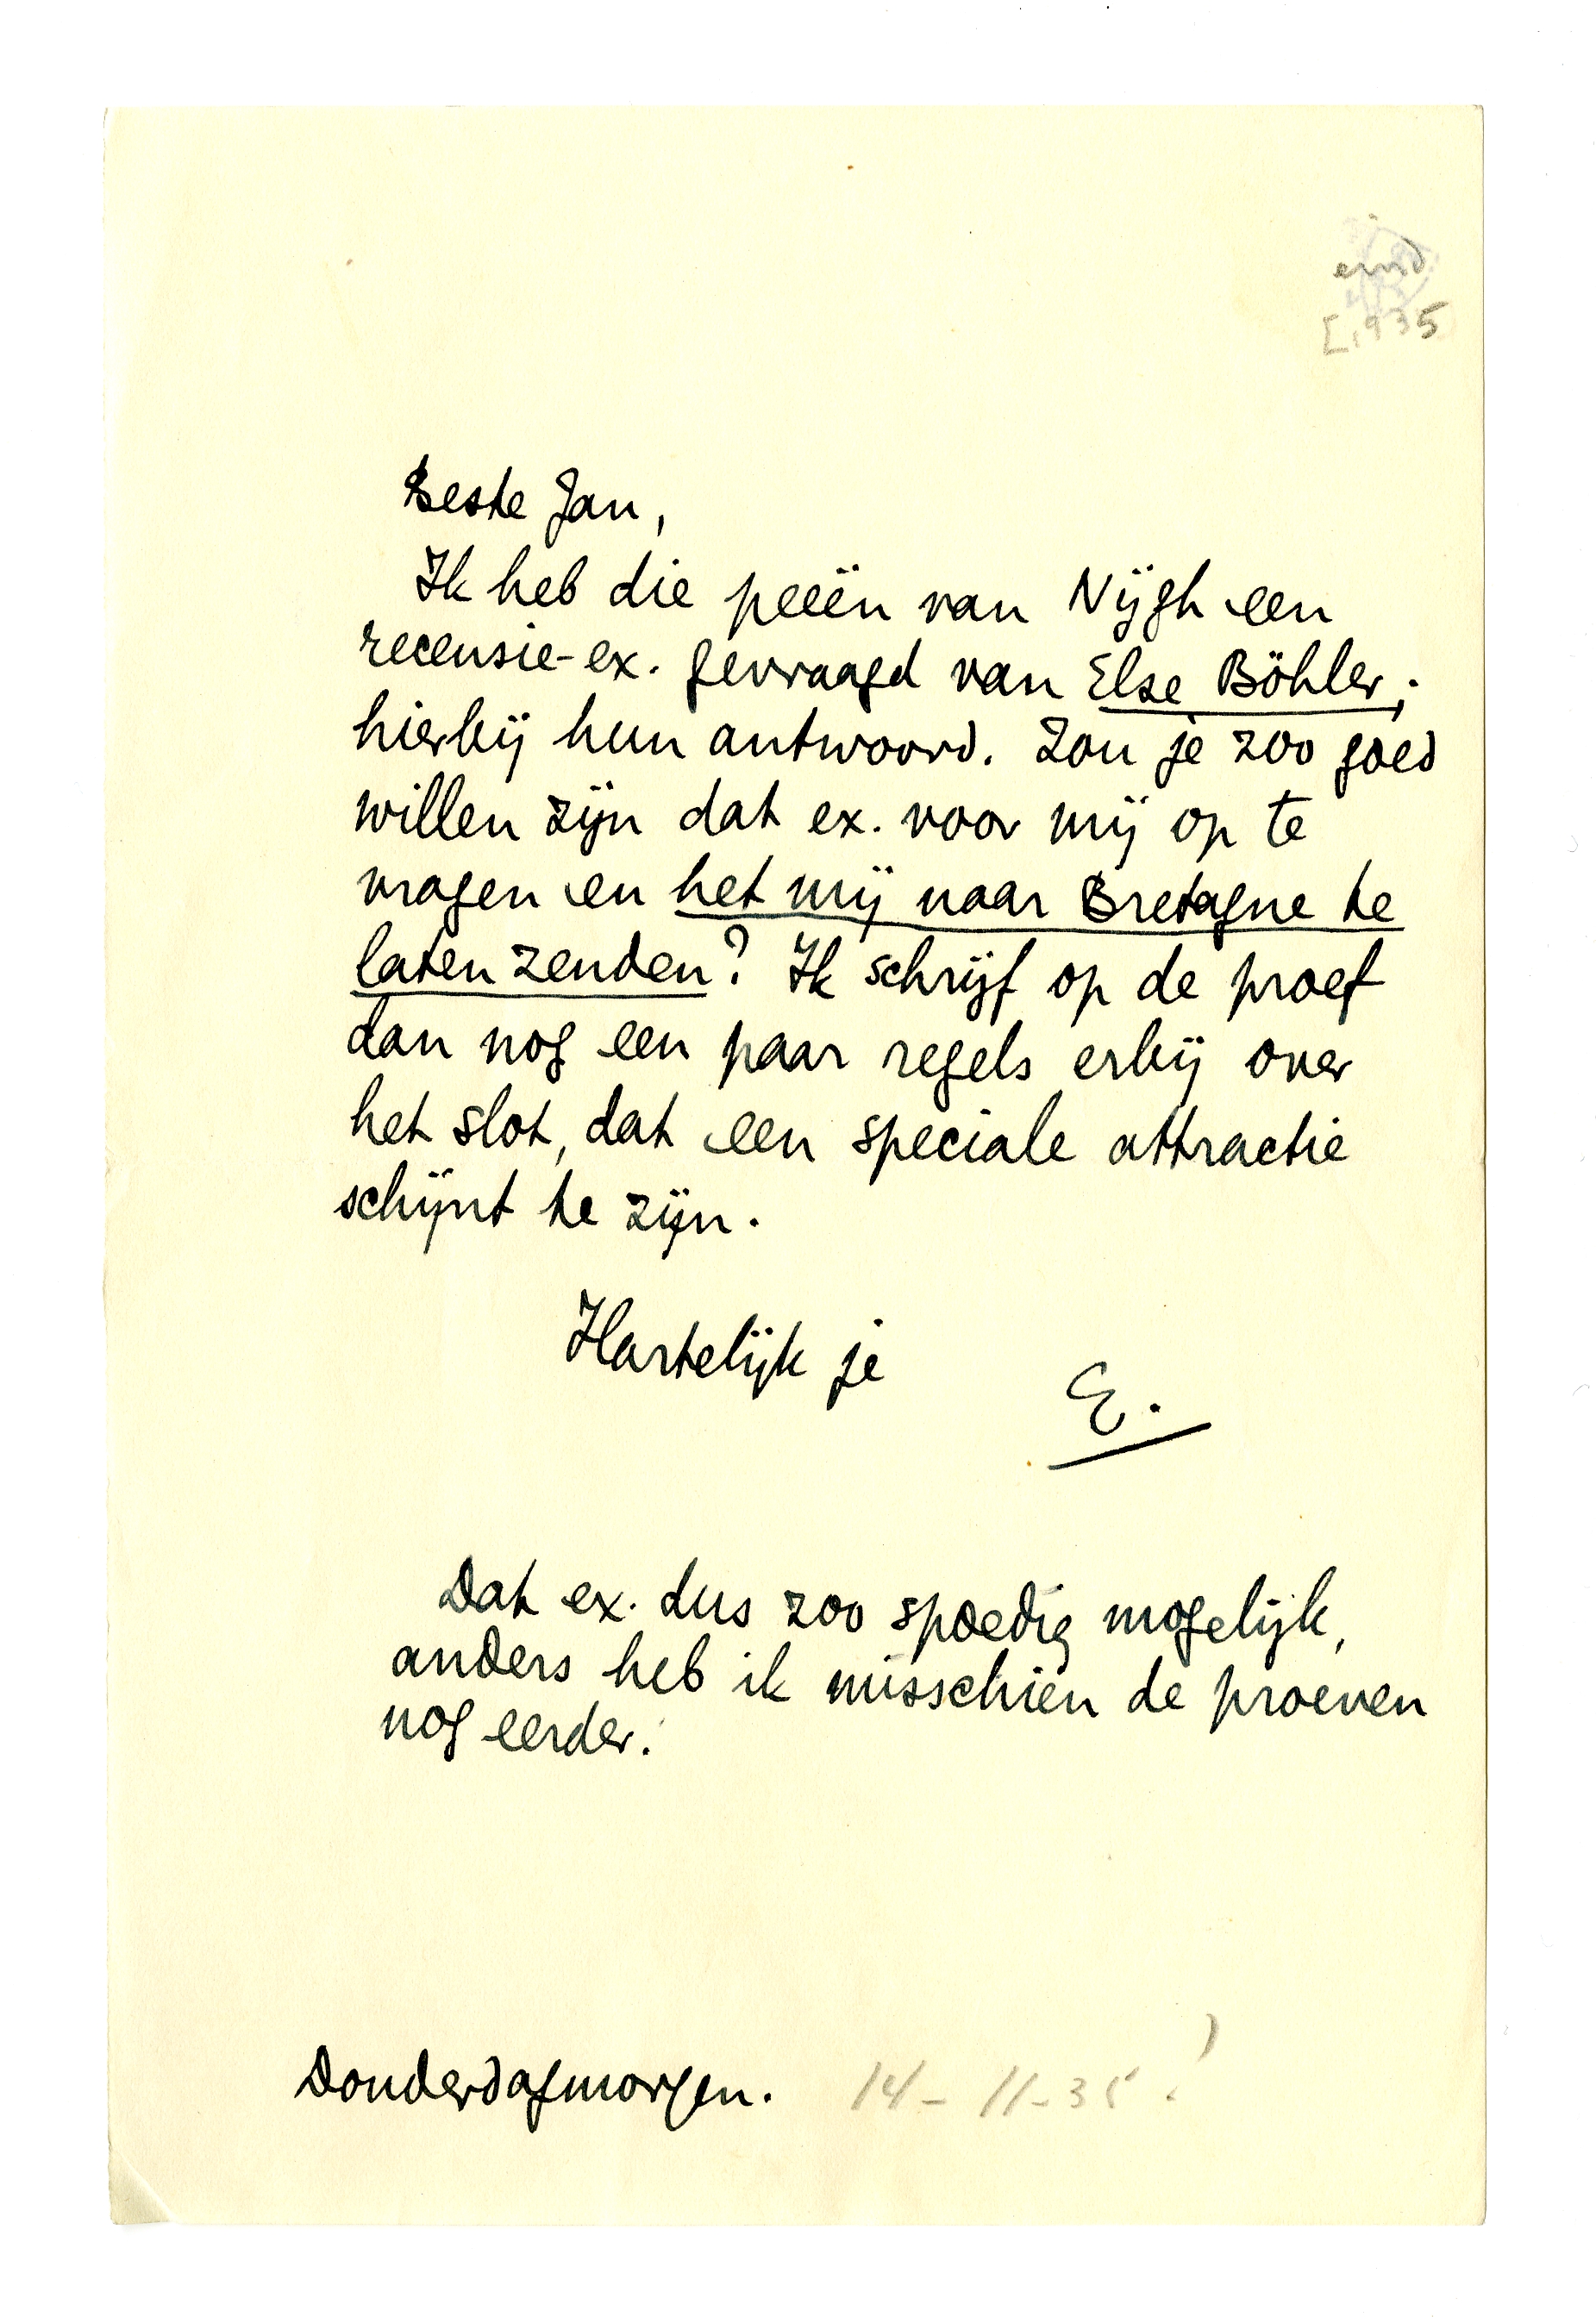 eind
[1935
Beste Jan,
Ik heb die peeën van Nijgh een
recensie-ex. gevraagd van Else Böhler;
hierbij hun antwoord. Zou je zoo goed
willen zijn dat ex. voor mij op te
vragen en het mij naar Bretagne te
laten zenden? Ik schrijf op de proef
dan nog een paar regels erbij over
het slot, dat een speciale attractie
schijnt te zijn.
Hartelijk je
E.
Dat ex. dus zoo spoedig mogelijk,
anders heb ik misschien de proeven
nog eerder.
Donderdagmorgen. 14-11-35?